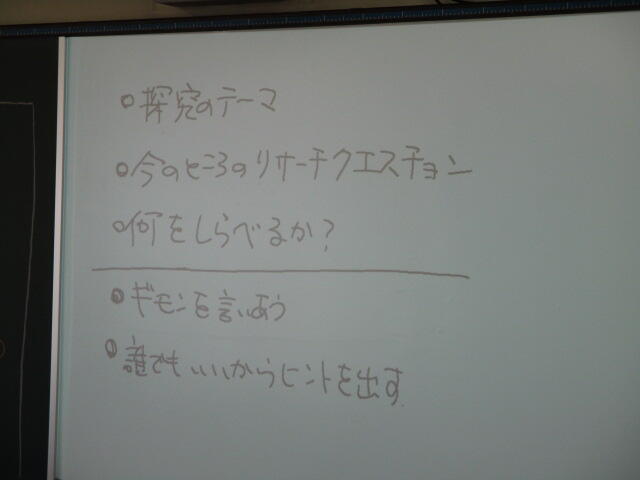 ○探究のテーマ
○今のところのリサーチクエスチョン
○何をしらべるか?
●ギモンを言いあう
●誰でもいいからヒントを出す